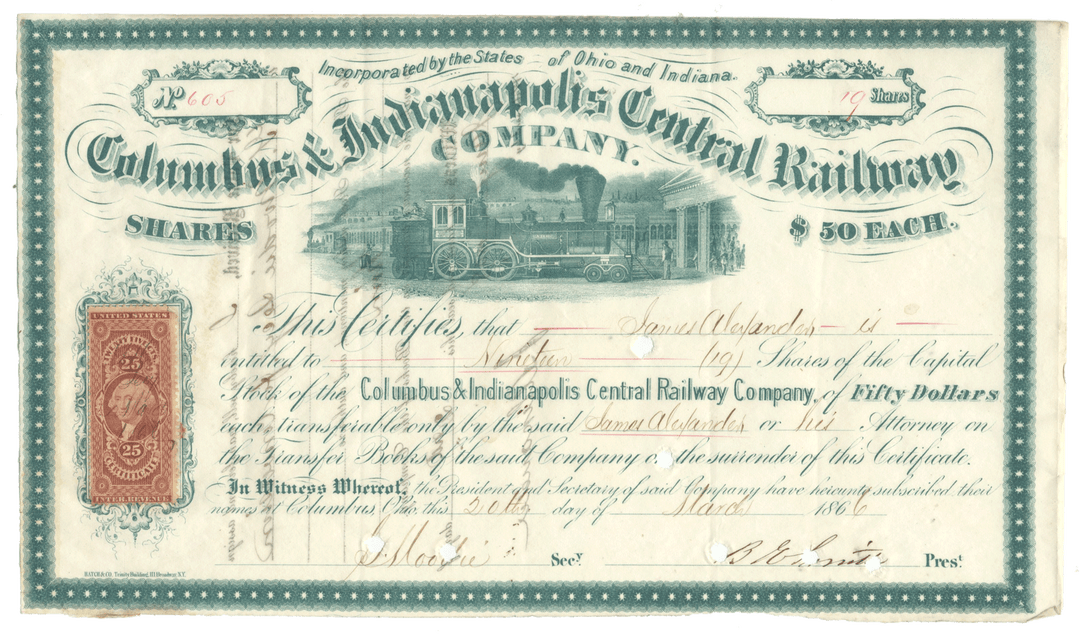 Incorporated by the States of Ohio and Indiana.
No 605
19 Shares
Columbus & Indianapolis Central Railway
COMPANY.
SHARES
$ 50 EACH.
This Certifies, that James Alexander is
entitled to Nineteen (19) Shares of the Capital
Stock of the Columbus & Indianapolis Central Railway Company, of Fifty Dollars
each transferable only by the said James Alexander or his Attorney on
the Transfer Books of the said Company on the surrender of this Certificate.
In Witness Whereof, the President and Secretary of said Company have hereunto subscribed their
names at Columbus, Ohio, this 20th day of March 1866
J. Moodie Secy
B E Smith Prest
UNITED STATES
TWENTY FIVE CTS
25
25
CERTIFICATE
INTER. REVENUE
HATCH & CO. Trinity Building, 111 Broadway N.Y.